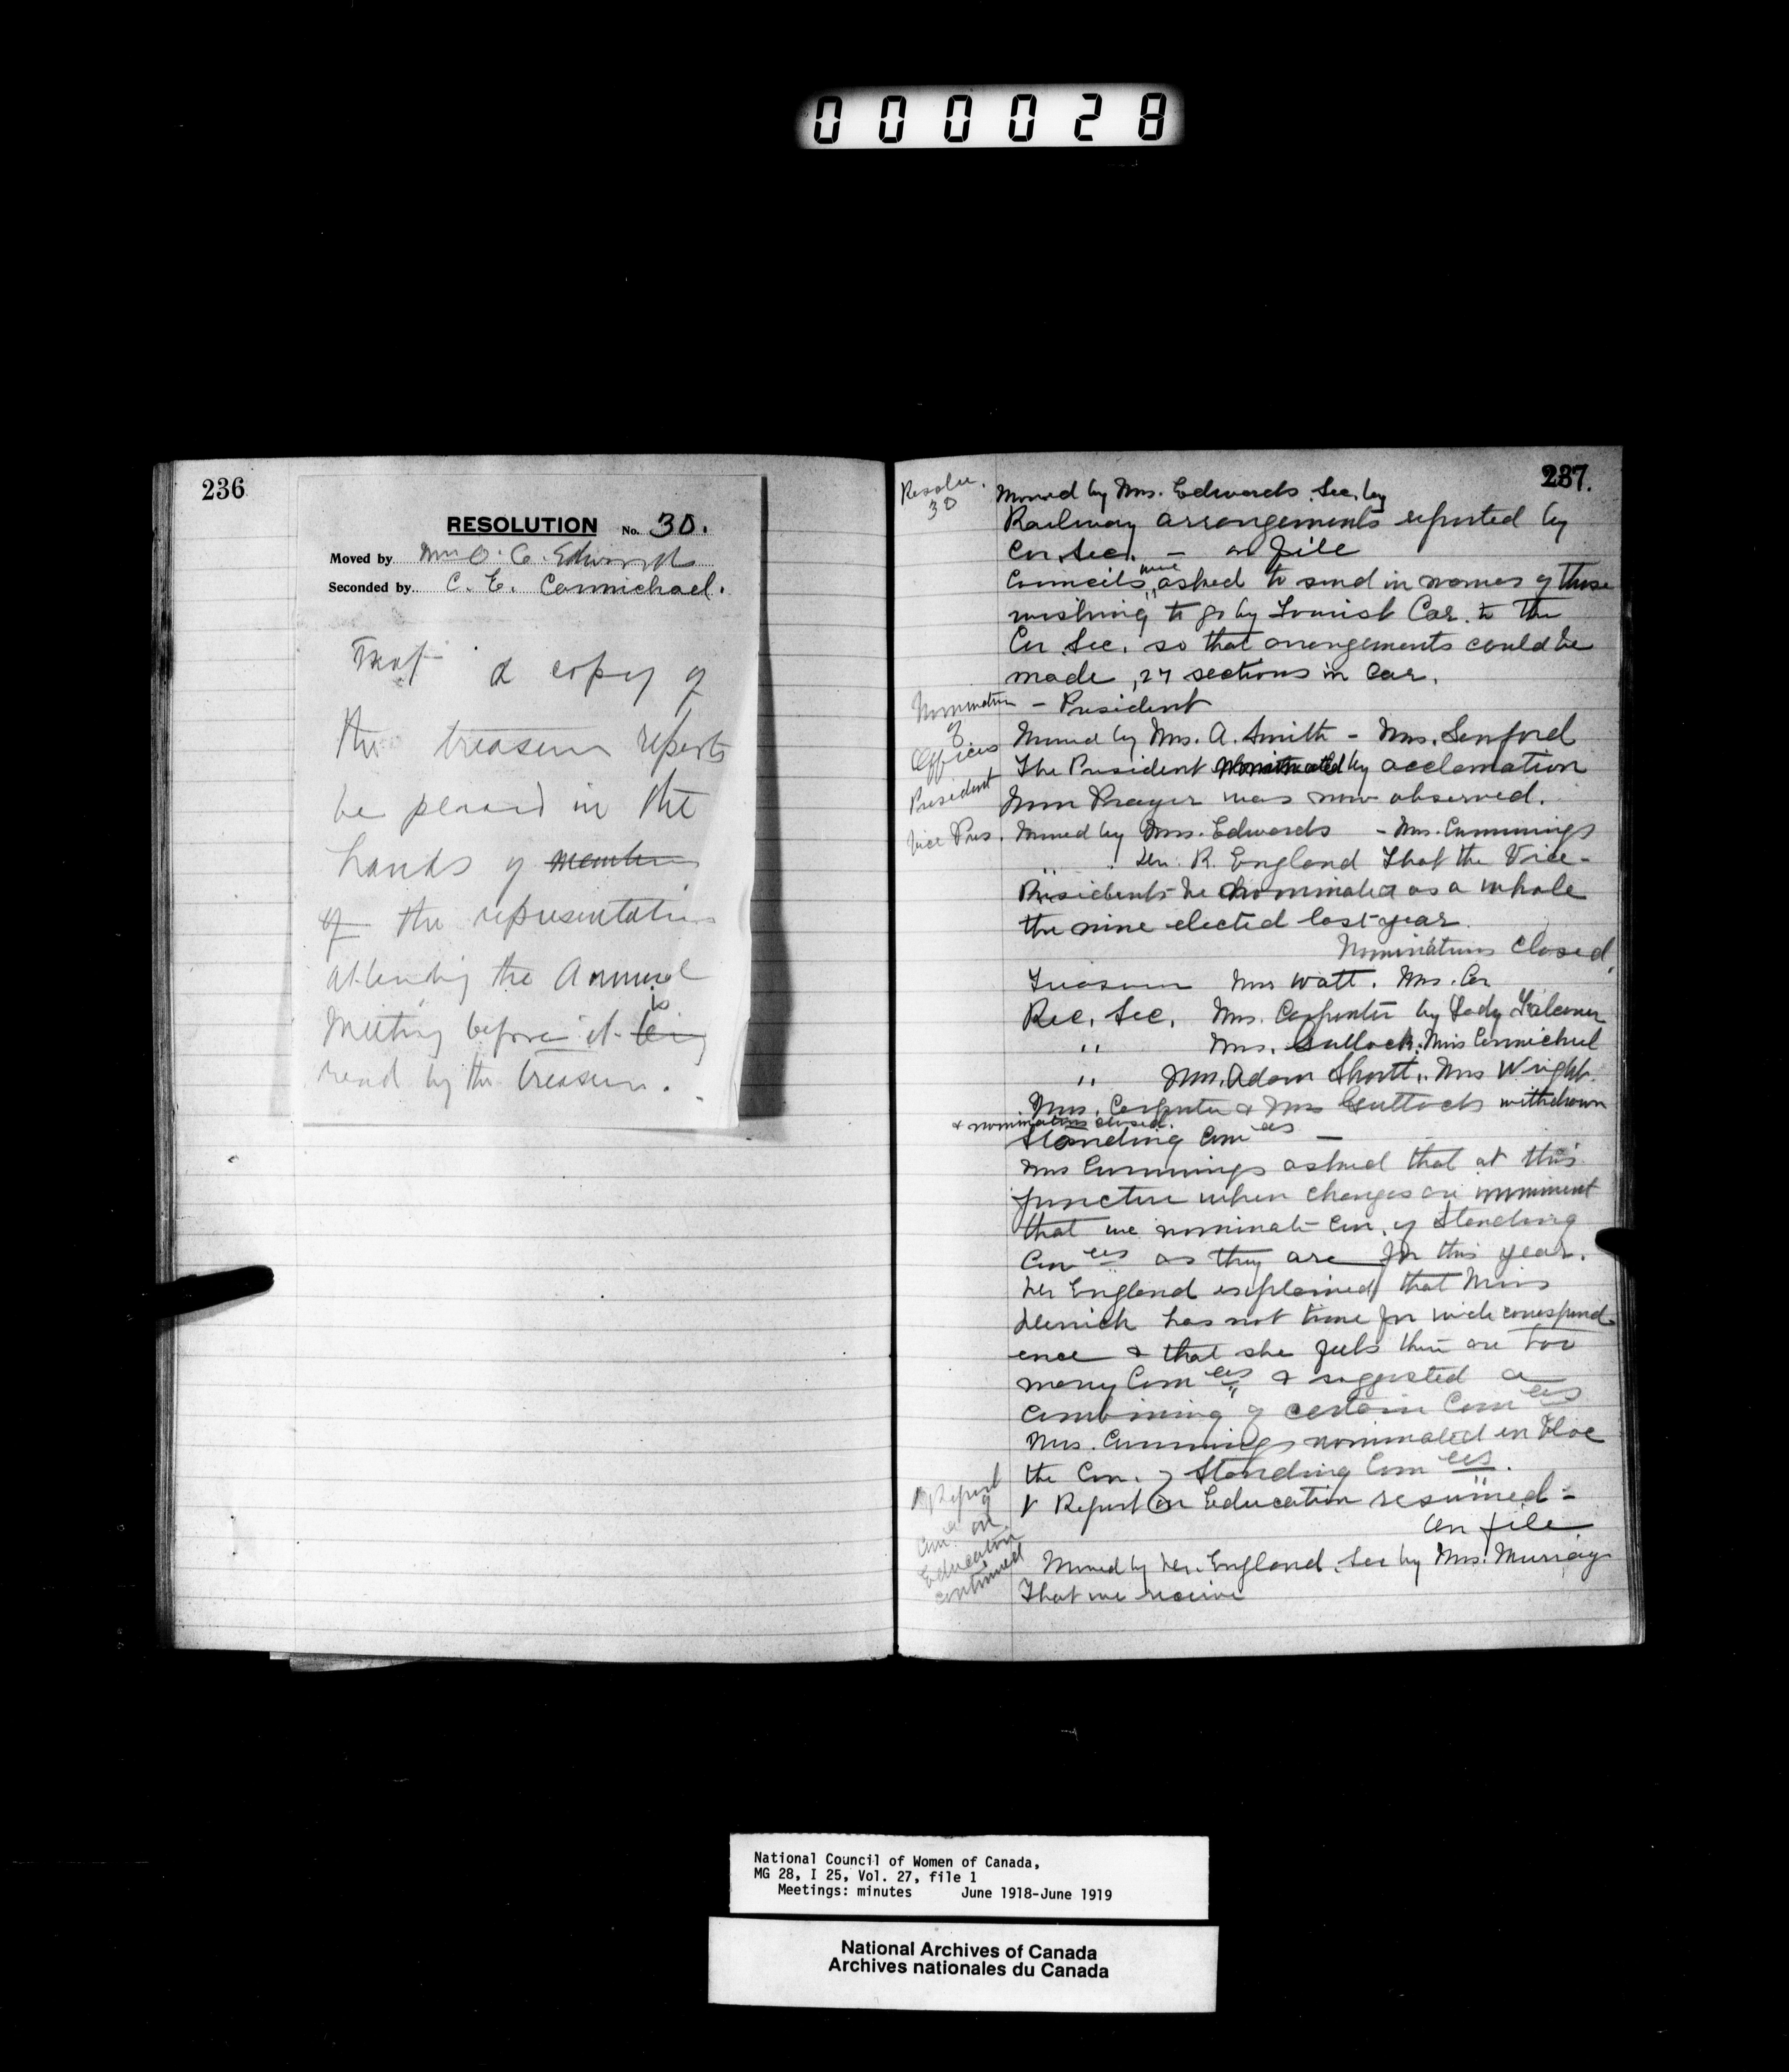 000028
236
RESOLUTION No. 30.
Moved by Mrs O. C. Edwards
Seconded by C. E. Carmichael.
That a copy of
the treasurer reports
be placed in the
hands of members
of the representatives
attending the Annual
is
Meeting before it being
read by the treasurer.
237.
Resolu.
30
Moved by Mrs. Edwards. Sec. by
Railway arrangements reported by
Cor. Sec. - on file
were
Councils asked to send in names of those
wishing to go by Tourist Car. to the
Cor. Sec. so that arrangements could be
made, 27 sections in Car.
Nomination
of
Officers
President
- President
Moved by Mrs. A. Smith - Mrs. Sanford
The President nominated by acclamation
Noon Prayer was now observed.
Vice Pres. Moved by Mrs. Edwards - Mrs. Cummings
" Dr. R. England That the Vice-
Presidents be nominated as a whole
the nine elected last year.
Nominations closed.
Treasurer Mrs Watt. Mrs.
Rec. Sec. Mrs. Carpenter by Lady Falconer
" Mrs. Bullock. Miss Carmichael
" Mrs. Adam Shortt " Mrs Wright.
Mrs. Carpenter & Mrs Bullock withdrawn
& nominations closed.
Standing Comees -
Mrs Cummings asked that at this
juncture when changes are imminent
that we nominate Con. of Standing
Comees as they are for this year.
Dr England explained that Miss
Derrick has not time for wide correspond
ence & that she feels there are too
many Comees & suggested a
Combining of certain Comees
Mrs. Cummings nominated en bloc
the Con. of Standing Comees.
Report
of
on
Education
continued
Report on Education resumed -
on file.
Moved by Dr. England. Sec by Mrs. Murray
That we receive
National Council of Women of Canada,
MG 28, I 25, Vol. 27, file 1
Meetings: minutes June 1918-June 1919
National Archives of Canada
Archives nationales du Canada